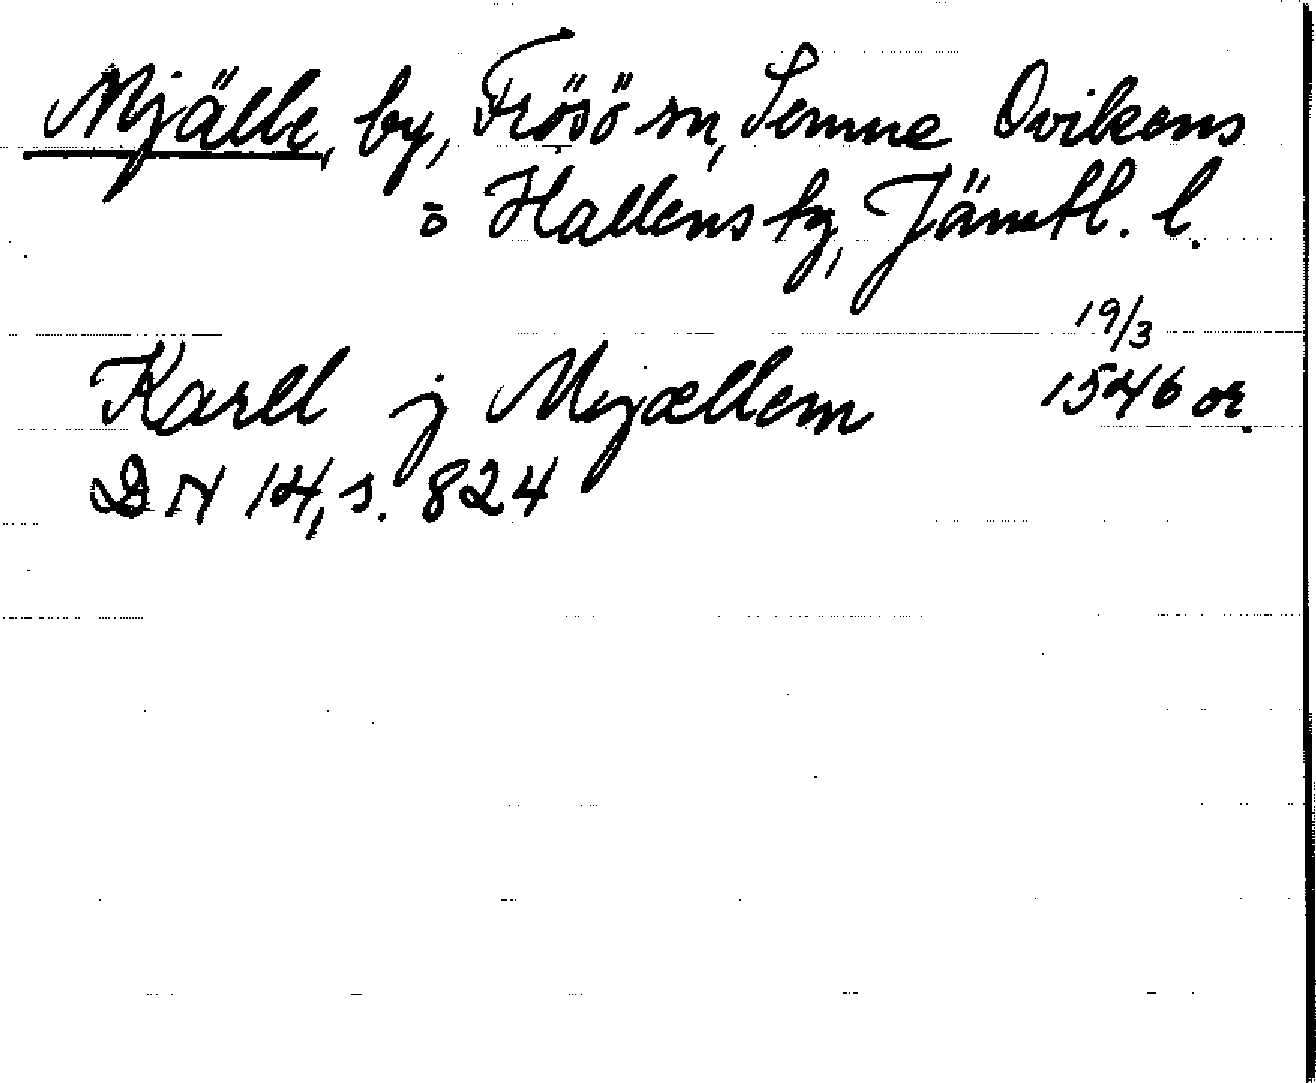 Mjälle, by, Frösö sn, Sunne Ovikens
o Hallens tg, Jämtl. l.
19/3
Karll j Myællem 1546 or.
DN 14, s. 824